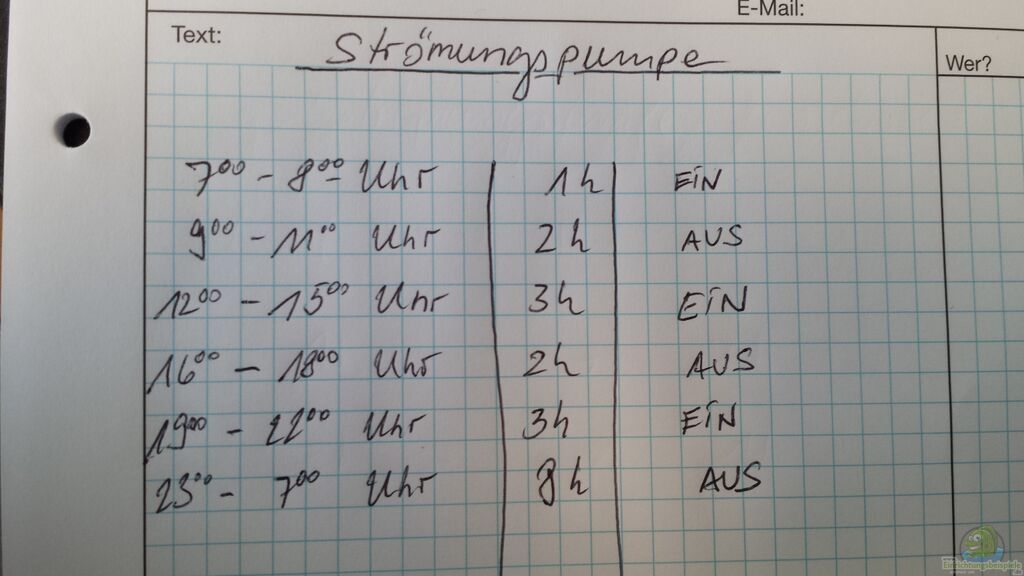 E-Mail:
Text:
Strömungspumpe
Wer?
7⁰⁰ - 8⁰⁰ Uhr 1h EiN
9⁰⁰ - 11⁰⁰ Uhr 2h AUS
12⁰⁰ - 15⁰⁰ Uhr 3h EiN
16⁰⁰ - 18⁰⁰ Uhr 2h AUS
19⁰⁰ - 22⁰⁰ Uhr 3h EiN
23⁰⁰ - 7⁰⁰ Uhr 8h AUS
Einrichtungsbeispiele